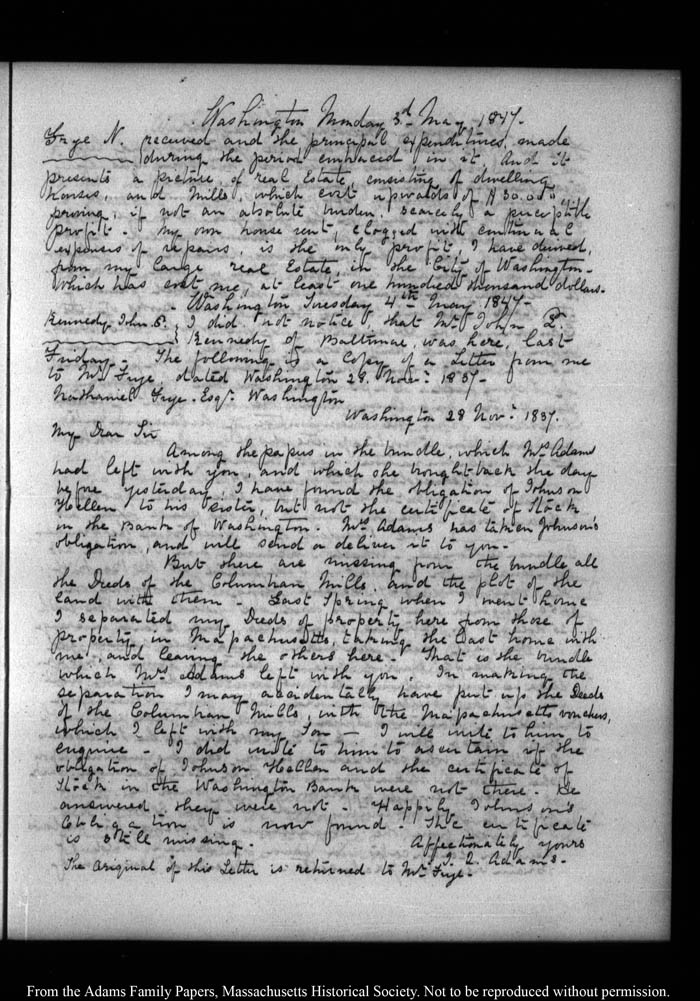 Washington Monday 3d May 1847.
Frye N. received and the principal expenditures, made
during the period embraced in it. And it
presents a picture of real Estate, consisting of dwelling
houses, and Mills, which cost upwards of $ 50.000,
proving, if not an absolute burden, scarcely a perceptible
profit. My own house rent, clogged with continual
expenses of repairs, is the only profit, I have derived,
from my large real Estate, in the City of Washington-
which has cost me, at least one hundred thousand dollars.
Washington Tuesday 4th May 1847-
Kennedy John P. I did not notice, that Mr John P.
Kennedy of Baltimore, was here, last
Friday- The following is a Copy of a Letter from me
to Mr Frye dated Washington 28. Novr: 1837-
Nathaniel Frye. Esqr. Washington
Washington 28 Novr: 1837.
My Dear Sir
Among the papers in the bundle, which Mrs Adams
had left with you, and which she brought back the day
before yesterday, I have found the obligation of Johnson
Hellen to his sister, but not the certificate of Stock
in the Bank of Washington. Mrs Adams has taken Johnson's
obligation, and will send or deliver it to you-
But there are missing from the bundle all
the Deeds of the Columbian Mills, and the plot of the
land with them- Last Spring when I went home
I separated my Deeds of property here from those of
property in Massachusetts, taking the last home with
me, and leaving the others here- That is the bundle
which Mrs Adams left with you. In making the
separation I may accidentally have put up the Deeds
of the Columbian Mills, with the Massachusetts vouchers,
which I left with my Son- I will write to him to
enquire- I did write to him to ascertain if the
obligation of Johnson Hellen and the certificate of
Stock in the Washington Bank were not there- He
answered they were not- Happily Johnson's
Obligation is now found. The certificate
is still missing. Affectionately yours
J. Q. Adams-
The Original of this Letter is returned to Mr Frye-
From the Adams Family Papers, Massachusetts Historical Society. Not to be reproduced without permission.